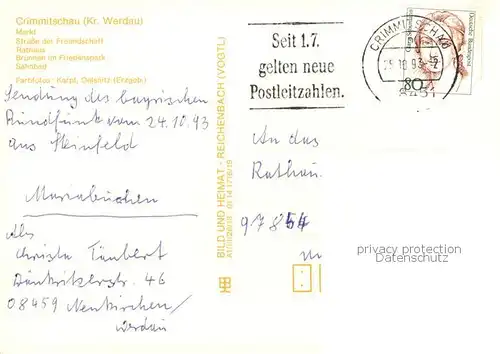 Crimmitschau (Kr. Werdau)
Markt
Straße der Freundschaft
Rathaus
Brunnen im Friedenspark
Bahnhof
Partifotos: Karpf, Oelsnitz (Erzgeb.)
Sendung des bayrischen
Rundfunks vom 24.10.93
aus Steinfeld
Mariabuchen
Christa Täubert
46
08459 Neukirchen/
Werdau
BILD UND HEIMAT · REICHENBACH (VOGTL)
Seit 1.7.
gelten neue
Postleitzahlen.
CRIMMITSCHAU
10.93
80
8451
Deutsche Bundespost
An das
Rathaus
97854
privacy protection
Datenschutz